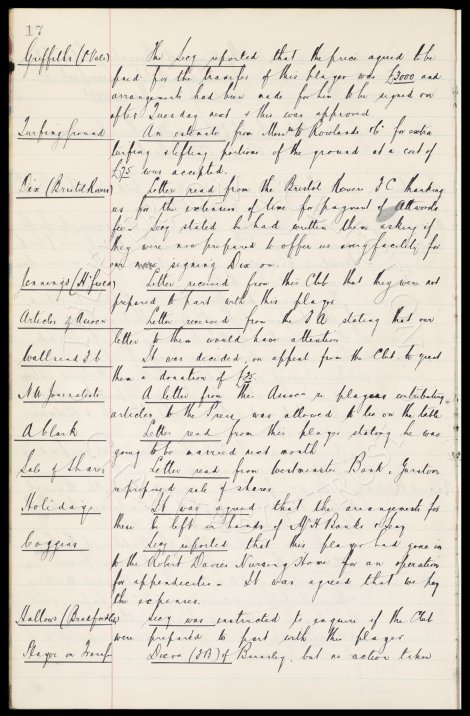 17
Griffiths (P Vale) The Secy reported that the price agreed to be
paid for the transfer of this player was £2000 and
arrangements had been made for him to be signed on
after Tuesday next & this was approved
Turfing Ground An estimate from Rowlands Co for extra
turfing & lifting portions of the ground at a cost of
£75 was accepted.
Dix (Bristol Rovers) Letter read from the Bristol Rovers F C thanking
us for the extension of time for payment of Attwoods
fee. Secy stated he had written them asking if
they were now prepared to offer us every facility for
our signing Dix on.
Jennings (H'field) Letter received from this Club that they were not
prepared to part with this player
Articles of Assocn Letter received from the F A stating that our
letter to them would have attention
Wallsend F.C It was decided, on appeal from the Club to grant
them a donation of £25.
N.U. Journalists A letter from this Assocn re players contributing
articles to the Press was allowed to lie on the table
A Clark Letter read from this player stating he was
going to be married next month
Sale of Shares Letter read from Westminster Bank,
re proposed sale of shares
Holiday. It was agreed that the arrangements for
these be left in hands of Mr H Banks & Secy
Coggins Secy reported that this player had gone in
to the Robert Davies Nursing Home for an operation
for appendicitis - It was agreed that we pay
the expenses.
Hallows (Bradford C) Secy was instructed to enquire if the Club
were prepared to part with this player
Player on Transf Dixon (F.B) of Barnsley, but no action taken